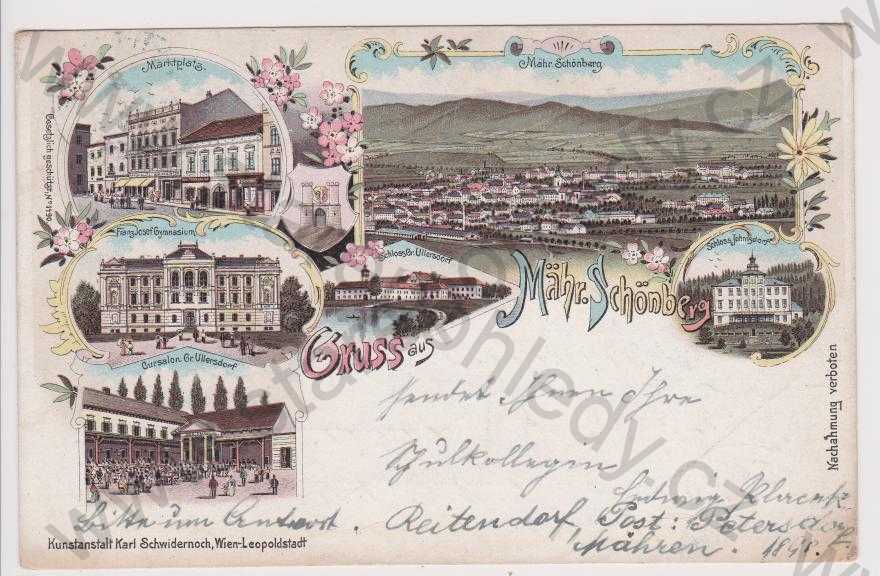 Marktplatz.
Mähr. Schönberg
Gesetzlich geschützt, Nº 1190
Franz Josef Gymnasium
Schloss Gr. Ullersdorf
Schloss Johnsdorf
Mähr. Schönberg
Gruss aus
Cursalon Gr. Ullersdorf
Nachahmung verboten
sendet Ihnen Ihre
Schulkollegin
Hedwig
Bitte um Antwort. Reitendorf, Post: Petersdorf
Mähren. 1898.
Kunstanstalt Karl Schwidernoch, Wien-Leopoldstadt
www.stare-pohledy.cz